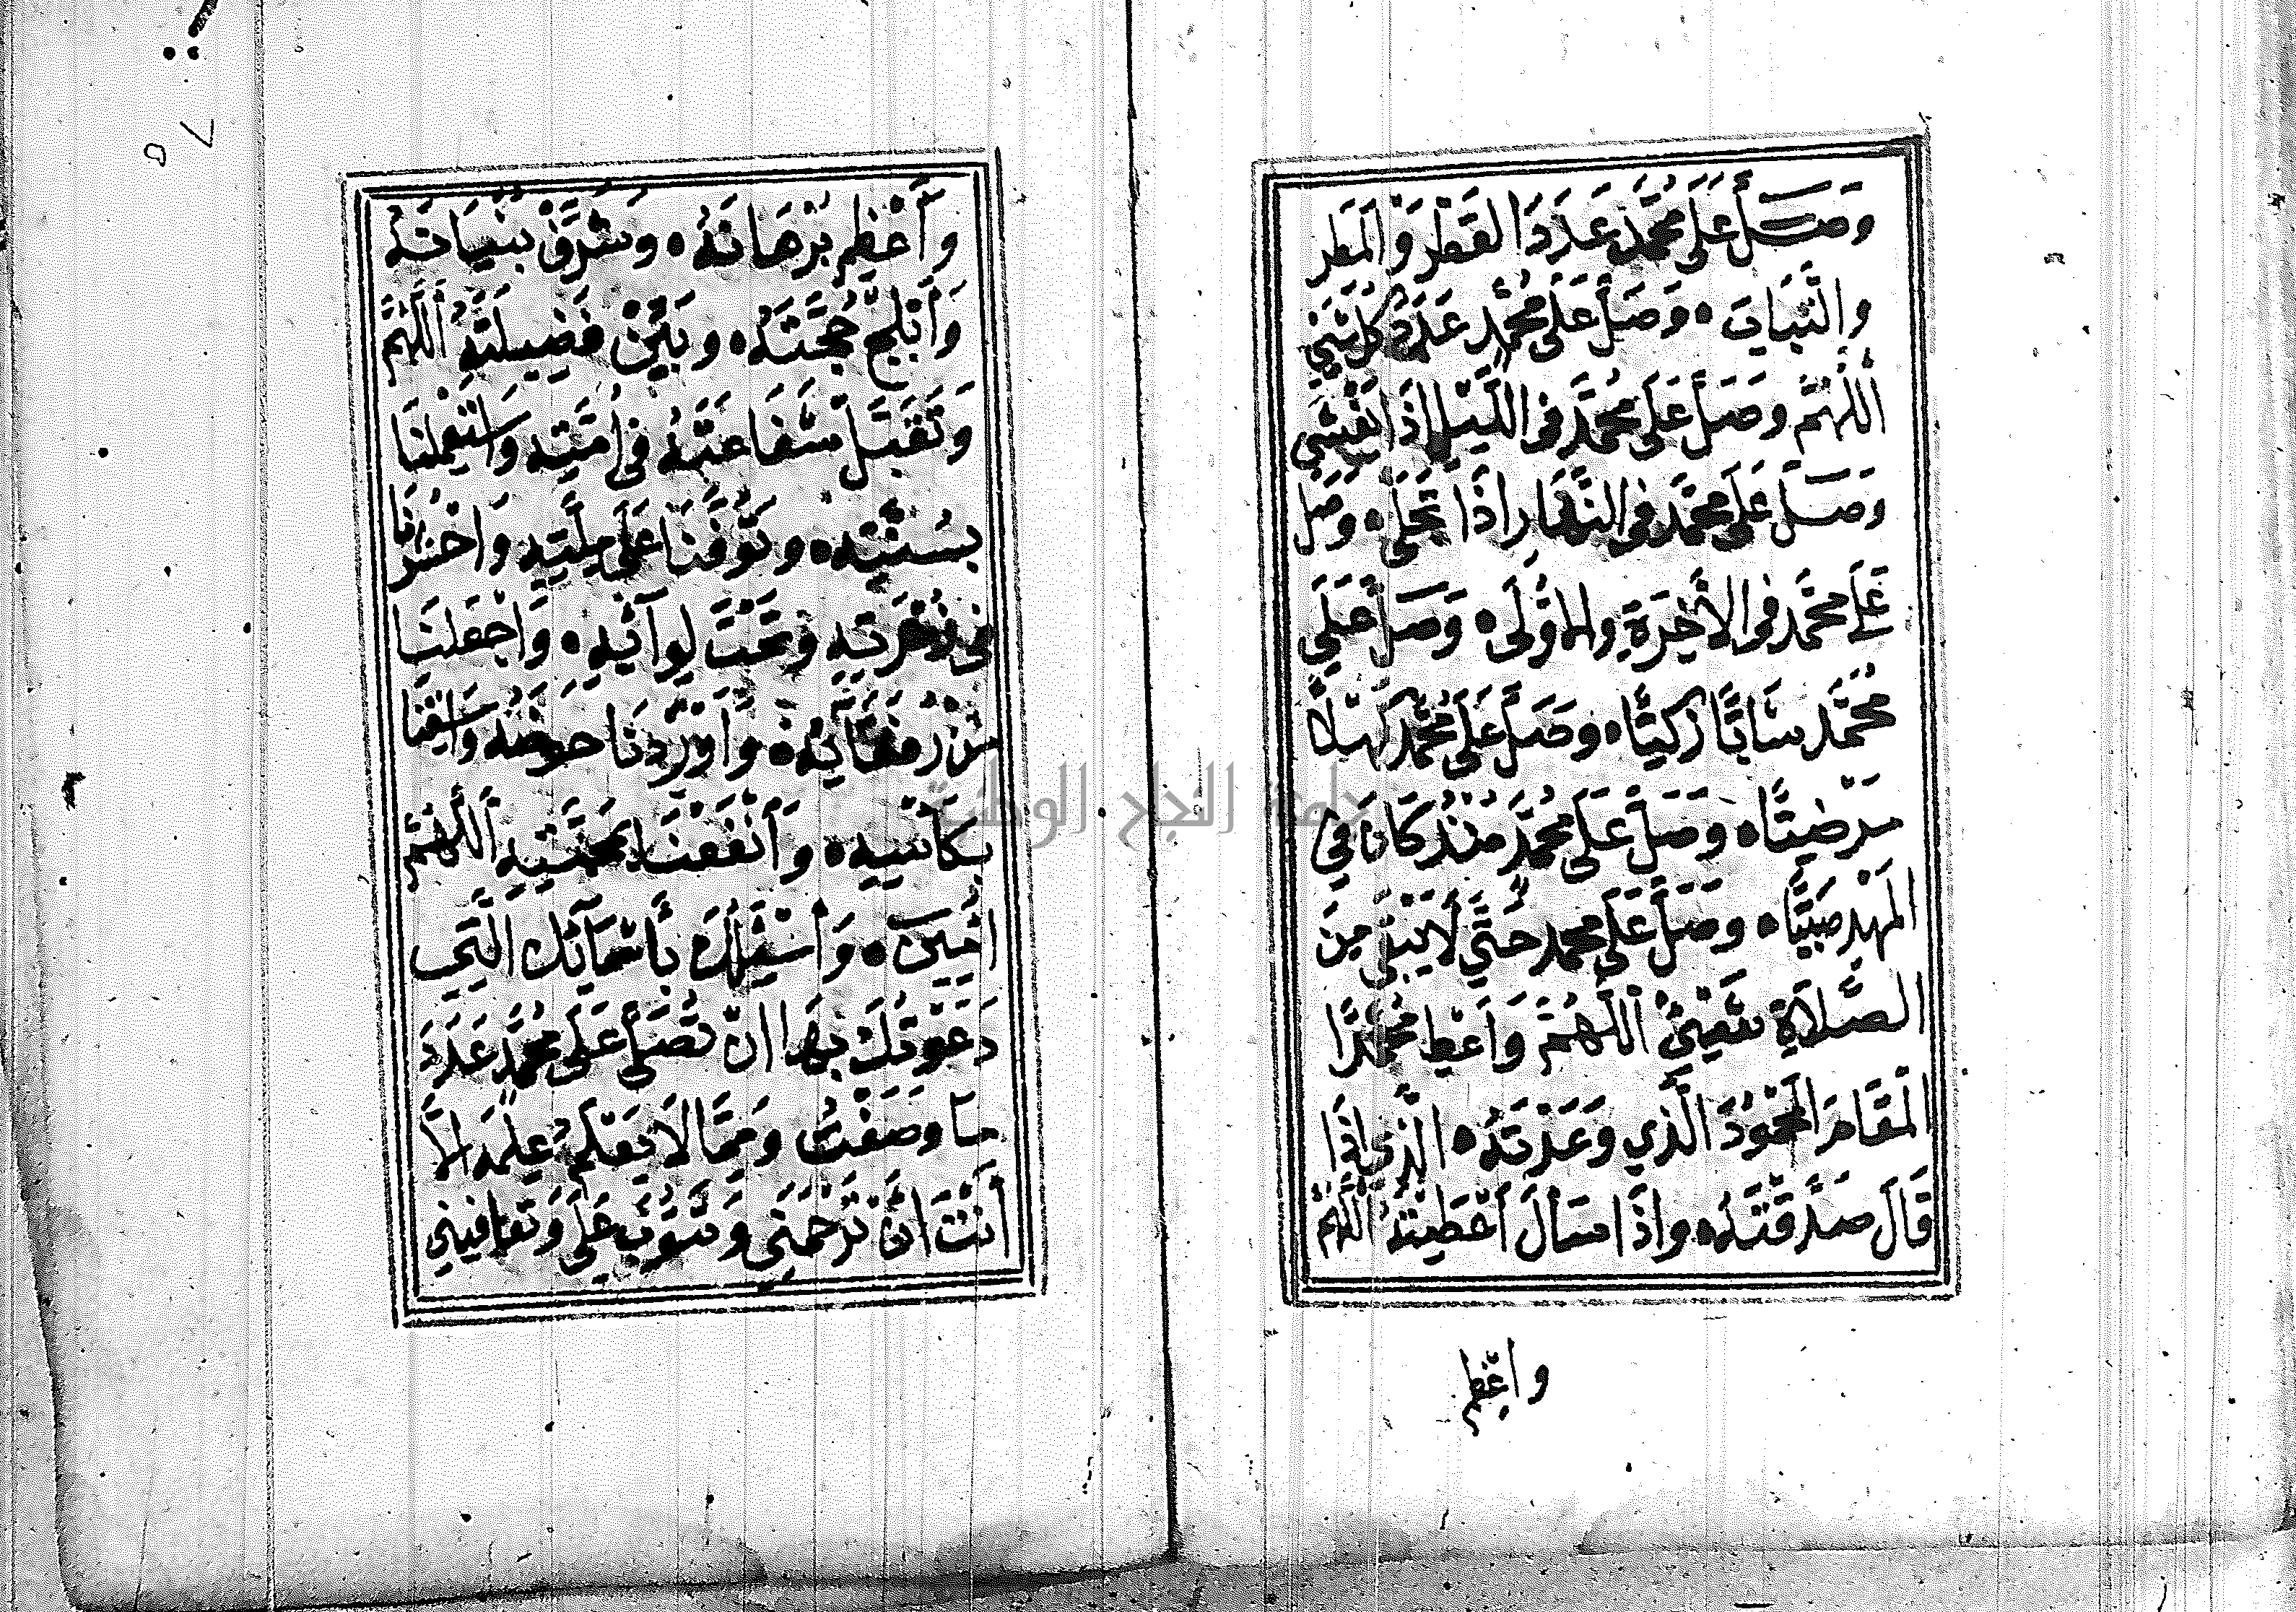 وَصَلِّ عَلَى مُحَمَّدٍ عَدَدَ القَطْرِ وَالمَطَرِ
وَالنَّبَاتِ ه وَصَلِّ عَلَى مُحَمَّدٍ عَدَدَ كُلِّ شَيْءٍ
اَللّٰهُمَّ وَصَلِّ عَلَى مُحَمَّدٍ فِى اللَّيْلِ إِذَا يَغْشَى
وَصَلِّ عَلَى مُحَمَّدٍ فِى النَّهَارِ اِذَا تَجَلَّى ه وَصَلِّ
عَلَى مُحَمَّدٍ فِى الاٰخِرَةِ وَالاُوْلَى ه وَصَلِّ عَلَى
مُحَمَّدٍ شَابًّا زَكِيًّا ه وَصَلِّ عَلَى مُحَمَّدٍ كَهْلًا
مَرْضِيًّا ه وَصَلِّ عَلَى مُحَمَّدٍ مُنْذُ كَانَ فِي
المَهْدِ صَبِيًّا ه وَصَلِّ عَلَى مُحَمَّدٍ حَتَّي لَا يَبْقَى مِنَ
الصَّلَاةِ شَيْئٌ اَللّٰهُمَّ وَاَعْطِ مُحَمَّدًا
الْمَقَامَ المَحْمُوْدَ الَّذِي وَعَدْتَهُ ه الَّذِي اِذَا
قَالَ صَدَّقْتَهُ ه وَاِذَا سَأَلَ اَعْطَيْتَهُ اَللّٰهُمَّ
وَاَعْظِمْ
وَأَعْظِمْ بُرْهَانَهُ ه وَشَرِّفْ بُنْيَانَهُ
وَأَبْلِجْ حُجَّتَهُ ه وَبَيِّنْ فَضِيلَتَهُ اَللّٰهُمَّ
وَتَقَبَّلْ شَفَاعَتَهُ فِى اُمَّتِهِ وَاسْتَعْمِلْنَا
بِسُنَّتِهِ ه وَتَوَفَّنَا عَلَى مِلَّتِهِ وَاحْشُرْنَا
فِى زُمْرَتِهِ وَتَحْتَ لِوَآئِهِ ه وَاجْعَلْنَا
مِنْ رُفَقَآئِهِ ه وَاَوْرِدْنَا حَوْضَهُ وَاسْقِنَا
بِكَأْسِهِ ه وَانْفَعْنَا بِمَحَبَّتِهِ اَللّٰهُمَّ
اٰمِينَ ه وَأَسْئَلُكَ بِأَسْمَآئِكَ الَّتِي
دَعَوْتُكَ بِهَا اَنْ تُصَلِّيَ عَلَى مُحَمَّدٍ عَدَدَ
مَا وَصَفْتُ وَمِمَّا لَا يَعْلَمُ عِلْمَهُ اِلَّا
أَنْتَ اَنْ تَرْحَمَنِى وَتَتُوْبَ عَلَيَّ وَتُعَافِيَنِي
جامعة النجاح الوطنية